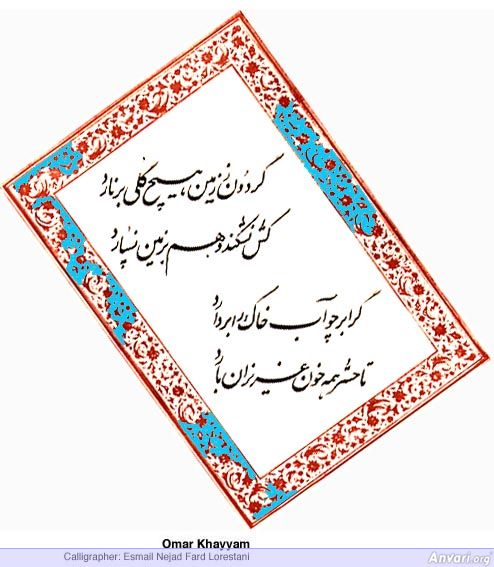 گردون ز زمین هیچ گلی برنارد
کش نشکند و هم بزمین نسپارد
گر ابر چو آب خاک را بردارد
تا حشر همه خون عزیزان بارد
Omar Khayyam
Calligrapher: Esmail Nejad Fard Lorestani
Anvari.org